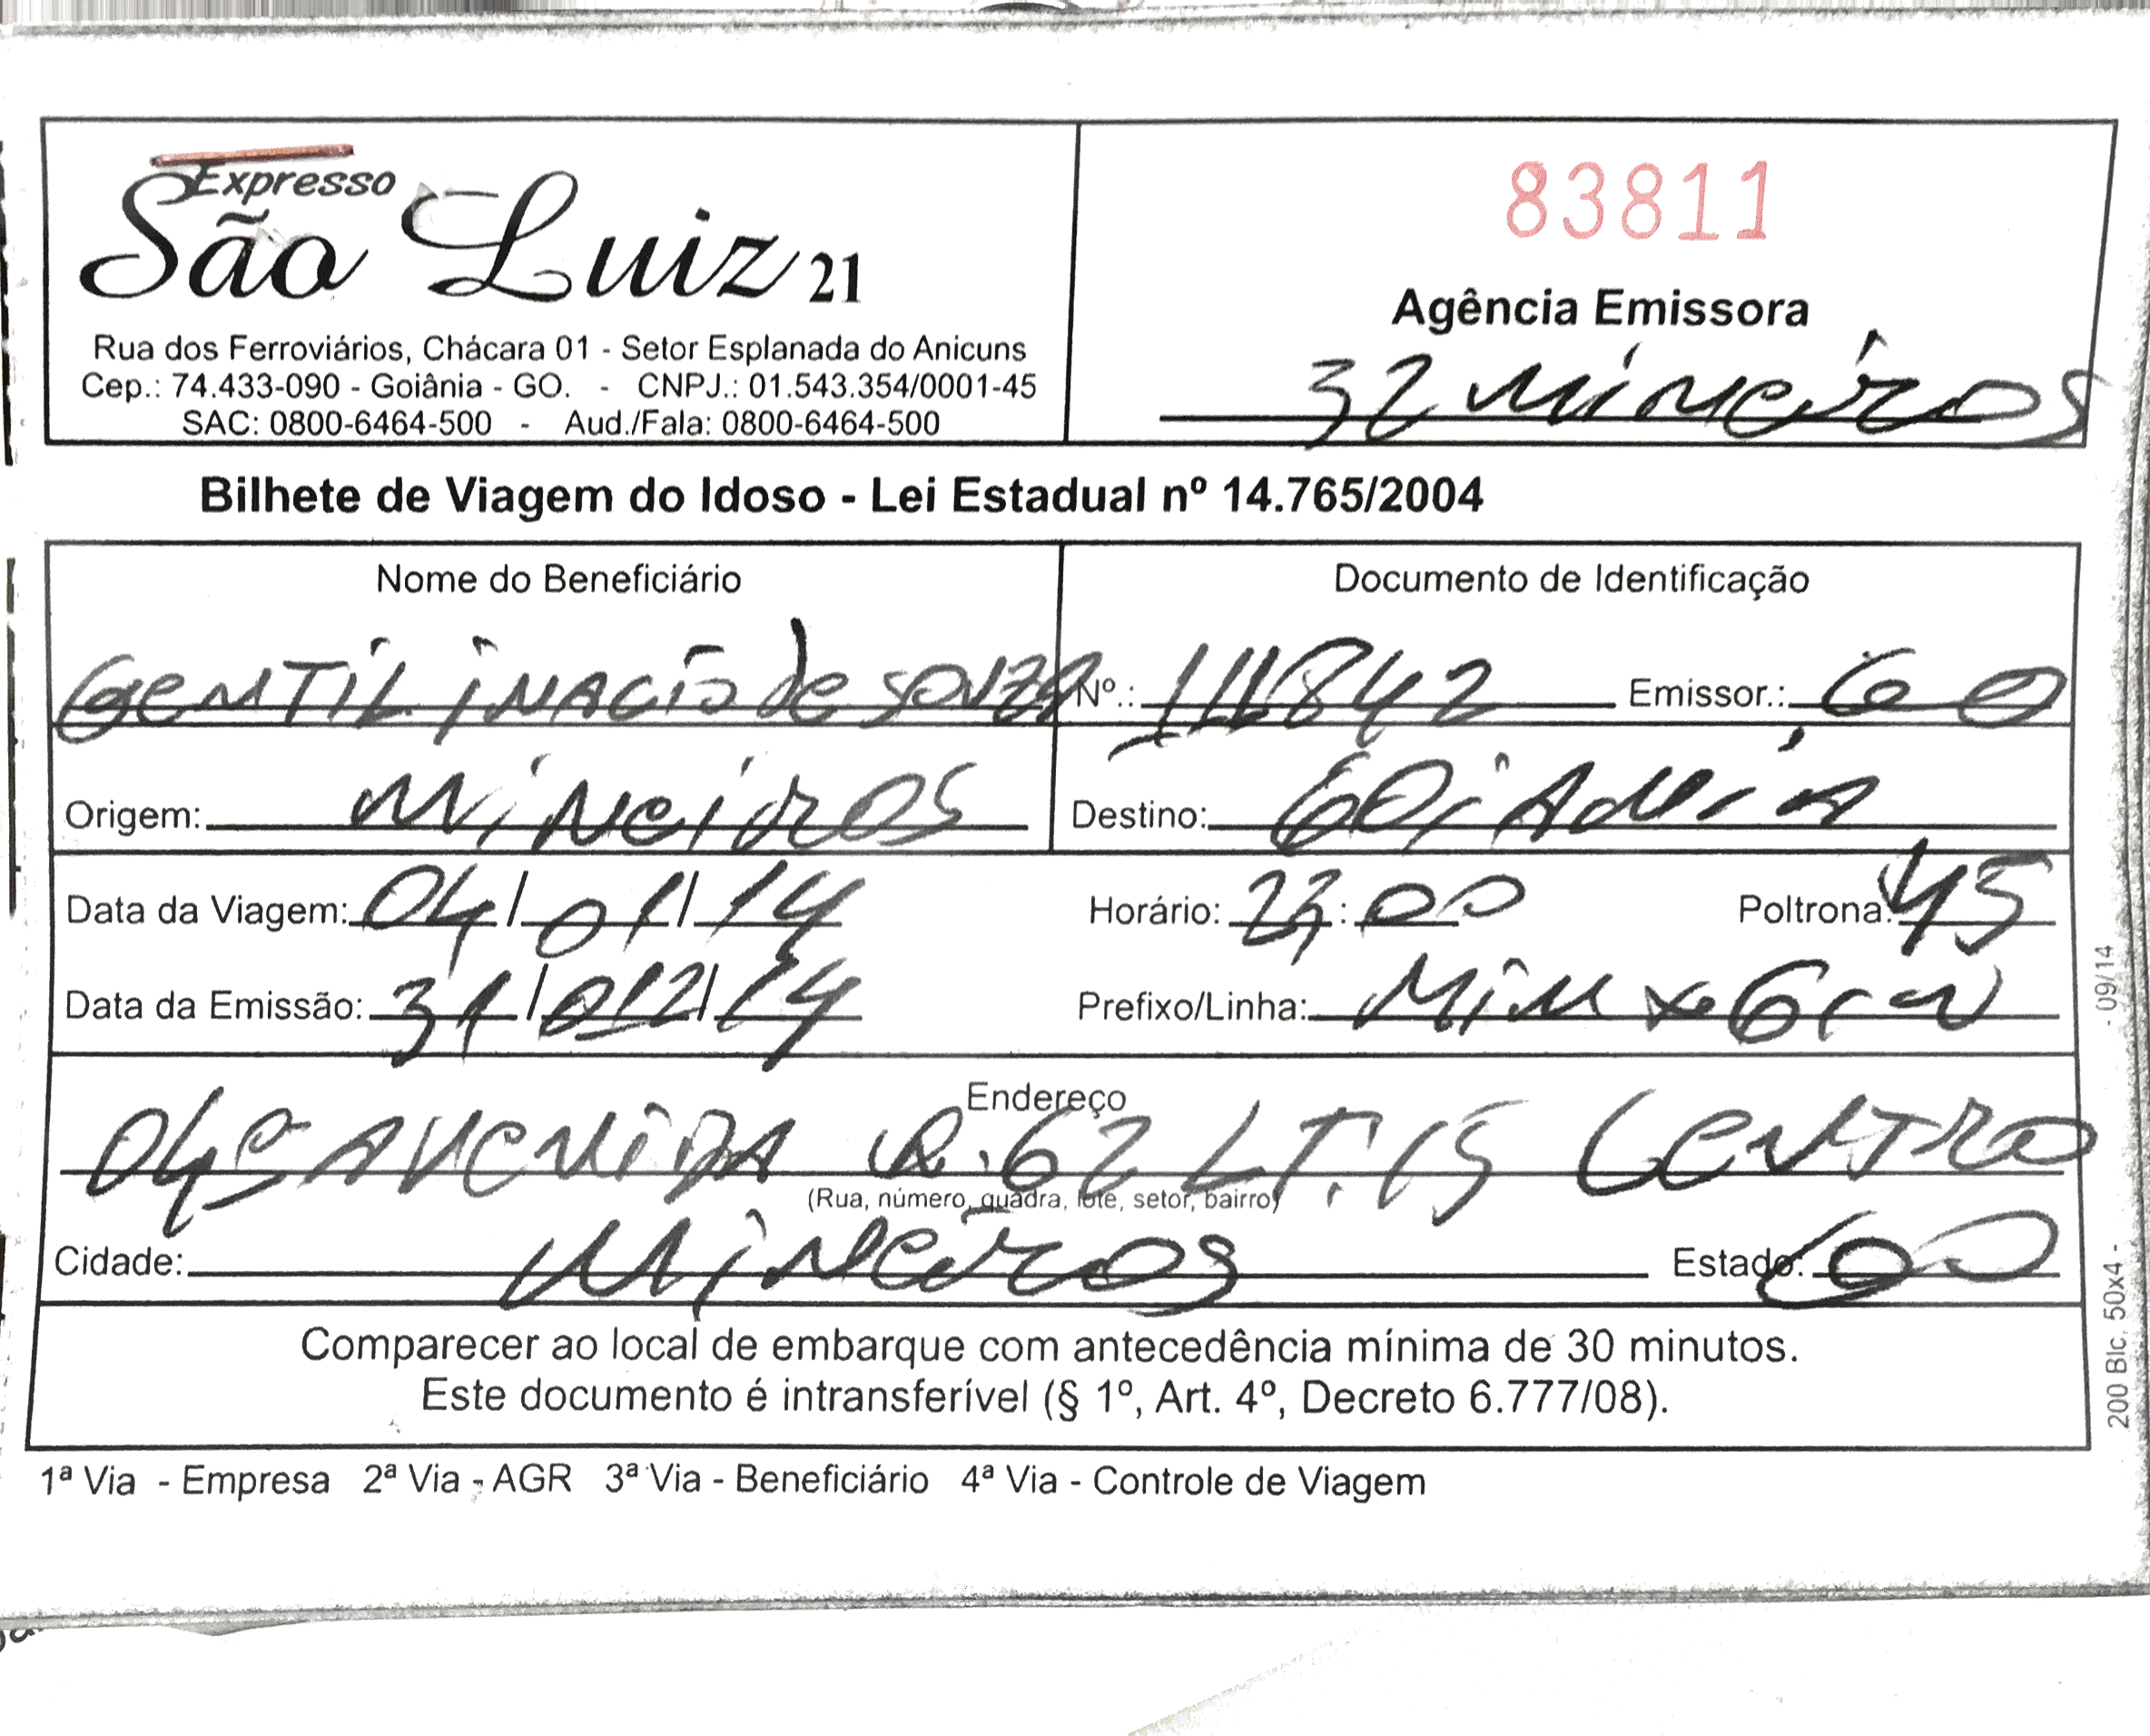 Expresso
São Luiz 21
Rua dos Ferroviários, Chácara 01 - Setor Esplanada do Anicuns
Cep.: 74.433-090 - Goiânia - GO. - CNPJ.: 01.543.354/0001-45
SAC: 0800-6464-500 - Aud./Fala: 0800-6464-500
83811
Agência Emissora
32 mineiros
Bilhete de Viagem do Idoso - Lei Estadual nº 14.765/2004
Nome do Beneficiário
GENTIL INACIO de SOUZA
Documento de Identificação
Nº.: 111842 Emissor.: GO
Origem: mineiros Destino: GOIANIA
Data da Viagem: 04/01/14 Horário: 23:00 Poltrona: 45
Data da Emissão: 31/12/14 Prefixo/Linha: Min x
Endereço
AVENIDA Q.62 LT.15 CENTRO
(Rua, número, quadra, lote, setor, bairro)
Cidade: mineiros Estado: GO
Comparecer ao local de embarque com antecedência mínima de 30 minutos.
Este documento é intransferível (§ 1º, Art. 4º, Decreto 6.777/08).
1ª Via - Empresa 2ª Via - AGR 3ª Via - Beneficiário 4ª Via - Controle de Viagem
200 Blc. 50x4 - - 09/14